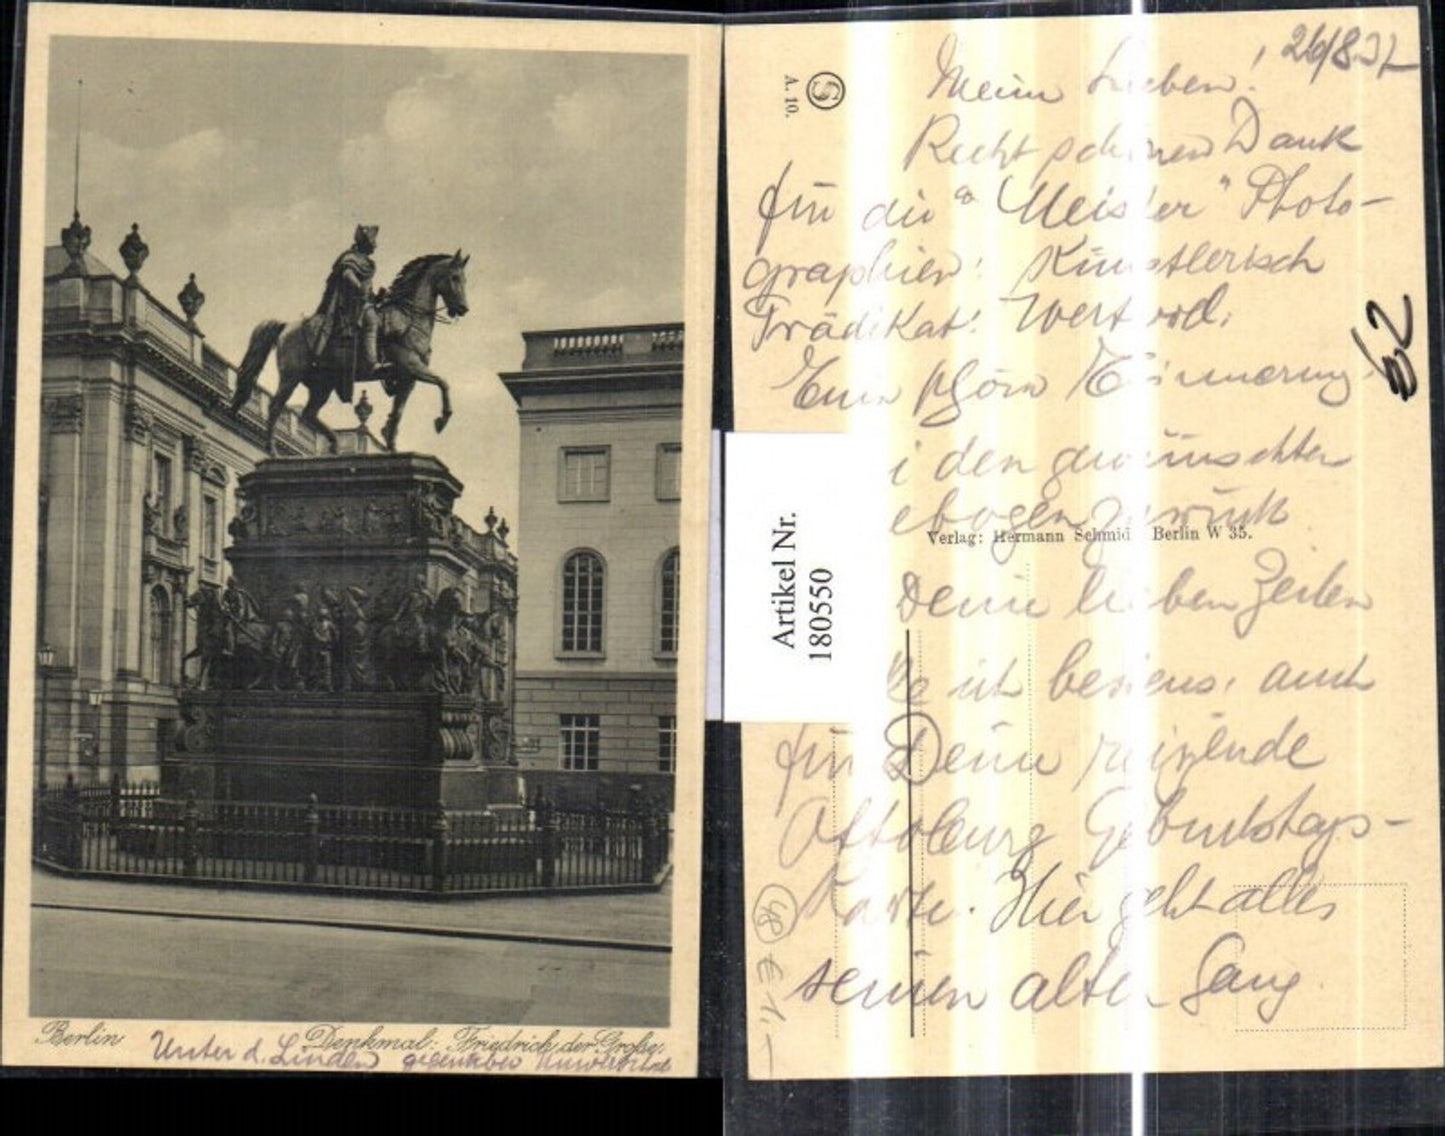 Berlin Denkmal: Friedrich der Große.
Unter d. Linden gegenüber Universität
A. 10.
26/8.32
Meine Lieben!
Recht schönen Dank
für die "Meister" Photo-
graphien: Künstlerisch
Prädikat: Wertvoll.
Eine schöne Erinnerung
den gewünschten
ebogen zurück.
Verlag: Hermann Schmid Berlin W 35.
Deine lieben Zeilen
ich bestens, auch
für Deine reizende
Altoburg Geburtstags-
Karte. Hier geht alles
seinen alten Gang
62
48
€ 1.-
Artikel Nr.
180550